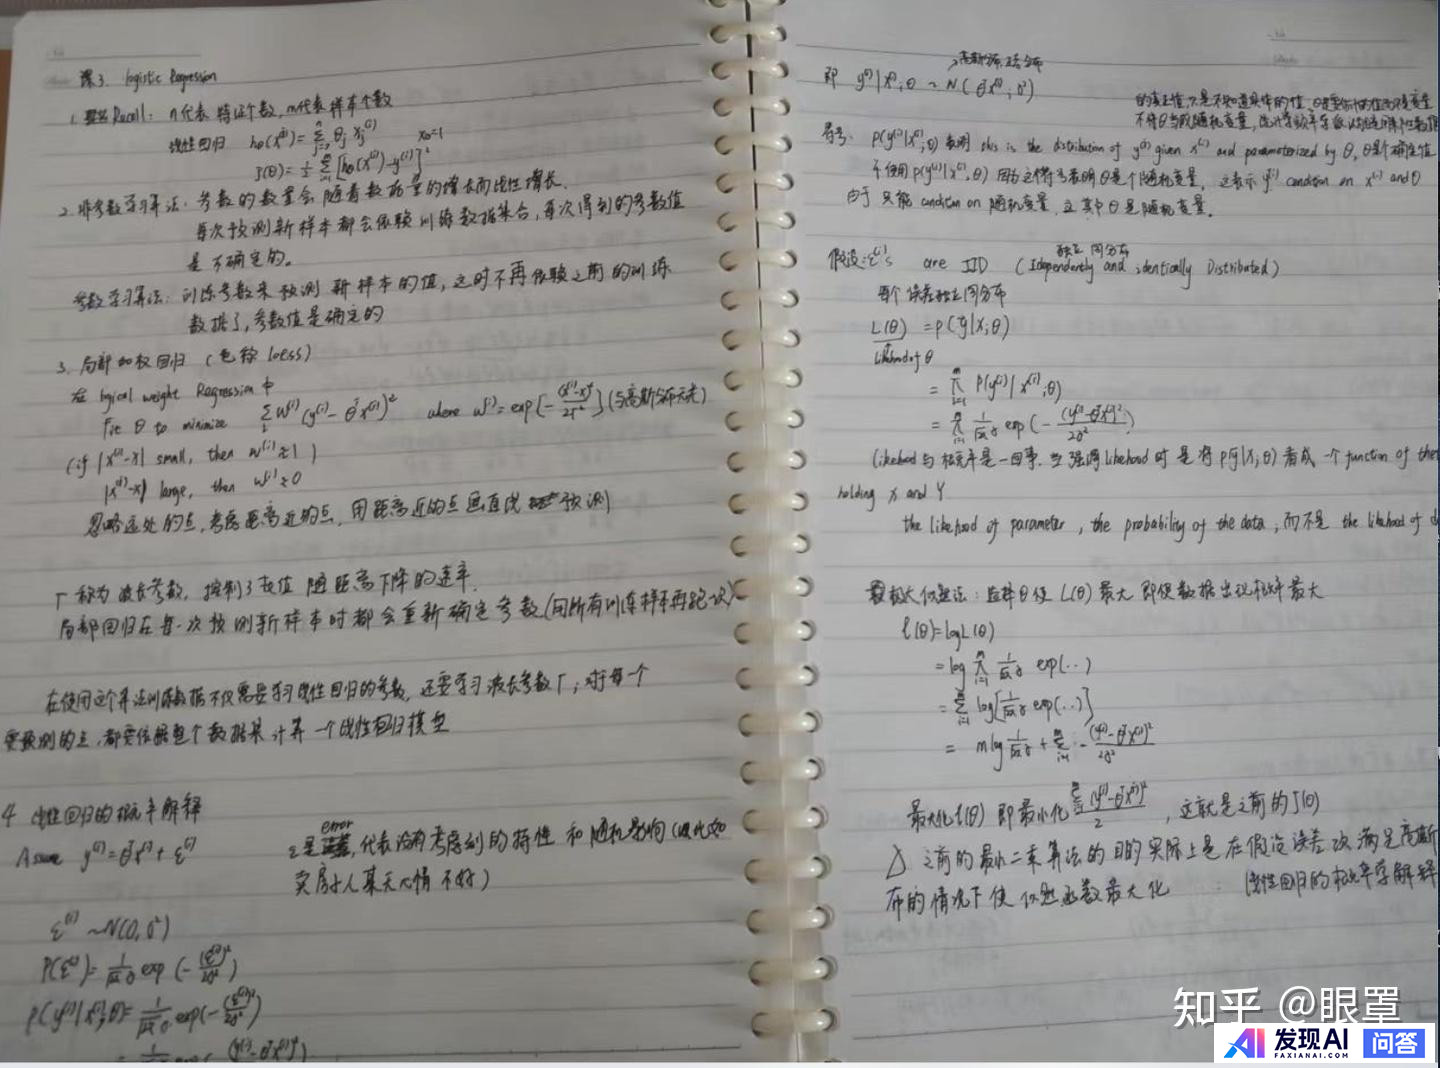 课3. logistic Regression
1. Recall: n代表特征个数, m代表样本个数
线性回归 hθ(x⁽ⁱ⁾)=Σⁿⱼ₌₀ θⱼ xⱼ⁽ⁱ⁾ x₀=1
J(θ)=½ Σ [hθ(x⁽ⁱ⁾)-y⁽ⁱ⁾]²
2. 非参数学习算法: 参数的数量会随着数据量的增长而线性增长.
每次预测新样本都会依赖训练数据集合, 每次得到的参数值
是不确定的。
参数学习算法: 训练参数来预测新样本的值, 这时不再依赖之前的训练
数据了, 参数值是确定的
3. 局部加权回归 (也称 loess)
在 logical weight Regression 中
Fit θ to minimize Σᵢ w⁽ⁱ⁾ (y⁽ⁱ⁾-θᵀx⁽ⁱ⁾)² where w⁽ⁱ⁾=exp(-(x⁽ⁱ⁾-x)²/2τ²) (与高斯分布无关)
(if |x⁽ⁱ⁾-x| small, then w⁽ⁱ⁾≈1)
|x⁽ⁱ⁾-x| large, then w⁽ⁱ⁾≈0
忽略远处的点, 考虑距离近的点, 用距离近的点画直线 预测
τ 称为波长参数, 控制了权值随距离下降的速率.
局部回归在每一次预测新样本时都会重新确定参数(向所有训练样本再跑一次)
在使用这个算法训练数据不仅需要学习线性回归的参数, 还要学习波长参数τ; 对每一个
要预测的点, 都要依据整个数据集计算一个线性回归模型
4 线性回归的概率解释
Assume y⁽ⁱ⁾=θᵀx⁽ⁱ⁾+ε⁽ⁱ⁾
error
ε是 , 代表没有考虑到的特性和随机影响(
卖房子人某天心情不好)
ε⁽ⁱ⁾~N(0,σ²)
P(ε⁽ⁱ⁾)=1/√2πσ exp(-(ε⁽ⁱ⁾)²/2σ²)
P(y⁽ⁱ⁾|x⁽ⁱ⁾;θ)=1/√2πσ exp(-(ε⁽ⁱ⁾)²/2σ²)
高斯分布, 正态分布
即 y⁽ⁱ⁾|x⁽ⁱ⁾;θ ~ N(θᵀx⁽ⁱ⁾, σ²)
的真正值, 只是不知道具体的值,
不将θ当成随机变量,
符号: P(y⁽ⁱ⁾|x⁽ⁱ⁾;θ) 表明 this is the distribution of y⁽ⁱ⁾ given x⁽ⁱ⁾ and parameterized by θ, θ是个确定值
不使用 P(y⁽ⁱ⁾|x⁽ⁱ⁾,θ) 因为这符号表明θ是个随机变量, 这表示 y⁽ⁱ⁾ condition on x⁽ⁱ⁾ and θ
由于只能 condition on 随机变量, 其中θ是随机变量.
独立同分布
假设: ε⁽ⁱ⁾'s are IID (Idependently and identically Distributed)
每个误差独立同分布
L(θ) = P(y|X;θ)
likehood of θ
= Πᵐᵢ₌₁ P(y⁽ⁱ⁾|x⁽ⁱ⁾;θ)
= Πᵐᵢ₌₁ 1/√2πσ exp(-(y⁽ⁱ⁾-θᵀx⁽ⁱ⁾)²/2σ²)
likehood与概率是一回事. 当强调 likehood 时是将 P(y|X;θ) 看成一个 function of
holding X and Y
the likehood of parameter, the probability of the data, 而不是 the likehood of
极大似然法: 选择θ使L(θ)最大 即使数据出现概率最大
ℓ(θ)=logL(θ)
=log Πᵐᵢ₌₁ 1/√2πσ exp(··)
= Σᵐᵢ₌₁ log[1/√2πσ exp(··)]
= mlog 1/√2πσ + Σᵐᵢ₌₁ -(y⁽ⁱ⁾-θᵀx⁽ⁱ⁾)²/2σ²
最大化ℓ(θ) 即最小化 Σᵐᵢ₌₁(y⁽ⁱ⁾-θᵀx⁽ⁱ⁾)²/2, 这就是之前的J(θ)
之前的最小二乘算法的目的实际上是在假设误差项满足高斯
布的情况下使似然函数最大化 线性回归的概率学解释
知乎 @眼罩
发现AI 问答
FAXIANAI.COM